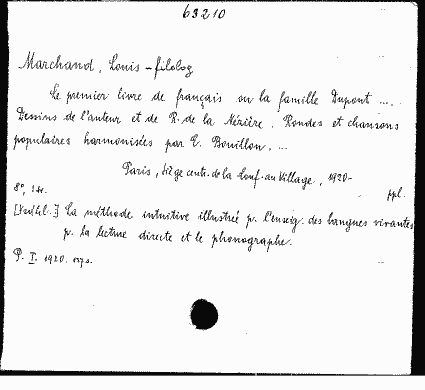 63210
Marchand, Louis - filolog
Le premier livre de français ou la famille Dupont ....
Dessins de l'auteur et de R. de la Nézière. Rondes et chansons
populaires harmonisées par E. Bouillon. ...
Paris, Siège centr. de la Conf. au Village, 1920-
8°, ppl.
La méthode intuitive illustrée p. l'enseig. des langues vivantes
p. la lecture directe et le phonographe.
P. I. 1920.